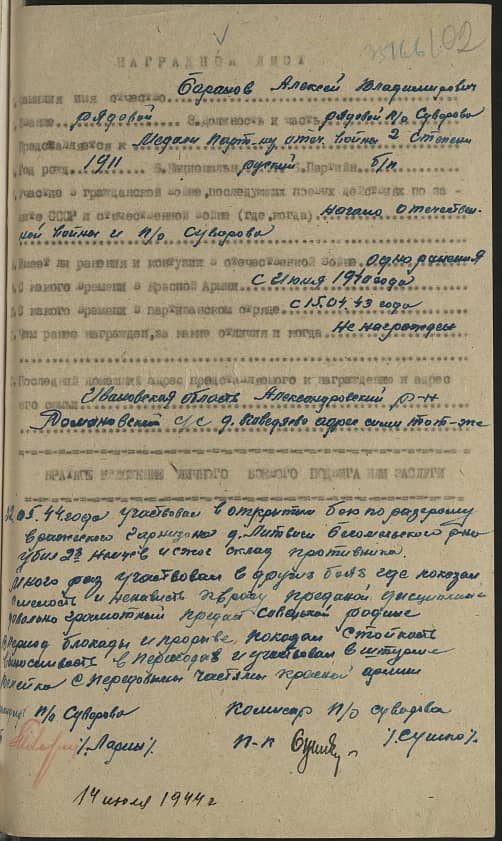 102
НАГРАДНОЙ ЛИСТ
Фамилия имя отчество Баранов Алексей Владимирович
Звание рядовой 2.Должность и часть рядовой п/о Суворова
Представляется к Медали Парт-му отеч. войны 2 степени
Год рожд. 1911 Национальн. руский Партийн. б/п
Участие в гражданской войне, последующих боевых действиях по за-
щите СССР и отечественной войне (где, когда) Начало отечествен-
ной войны и п/о Суворова
Имеет ли ранения и контузии в отечественной войне одно ранения
С какого времени в Красной Армии с июля 1940 года
С какого времени в партизанском отряде с 15.04.43 года
Чем ранее награжден, за какие отличия и когда Не награжден
Последний домашний адрес представляемого к награждению и адрес
его семьи Ивановская область Александровский р-н
Романовский с/с д. адрес семьи тот-же
КРАТКОЕ ИЗЛОЖЕНИЕ ЛИЧНОГО БОЕВОГО ПОДВИГА ИЛИ ЗАСЛУГИ
05.44 года участвовал в открытом бою по разгрому
вражеского гарнизона д. Литвичи бегомльского р-на
убил 2х немцев и сжог склад противника.
Много раз участвовал в других боях где показал
смелость и ненависть к врагу преданой, дисциплини
довольно грамотный предан советской родине
В период блокады и прорыве показал стойкость
выносливость в переходах и участвовал в штурме
с передовыми частями красной армии
п/о Суворова Комисар п/о Суворова
П-к /Сушко/.
14 июля 1944 г